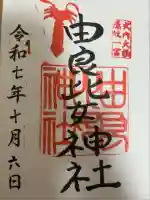 式内大社
隠岐一宮
由良比女神社
由良
神社
令和七年十月六日